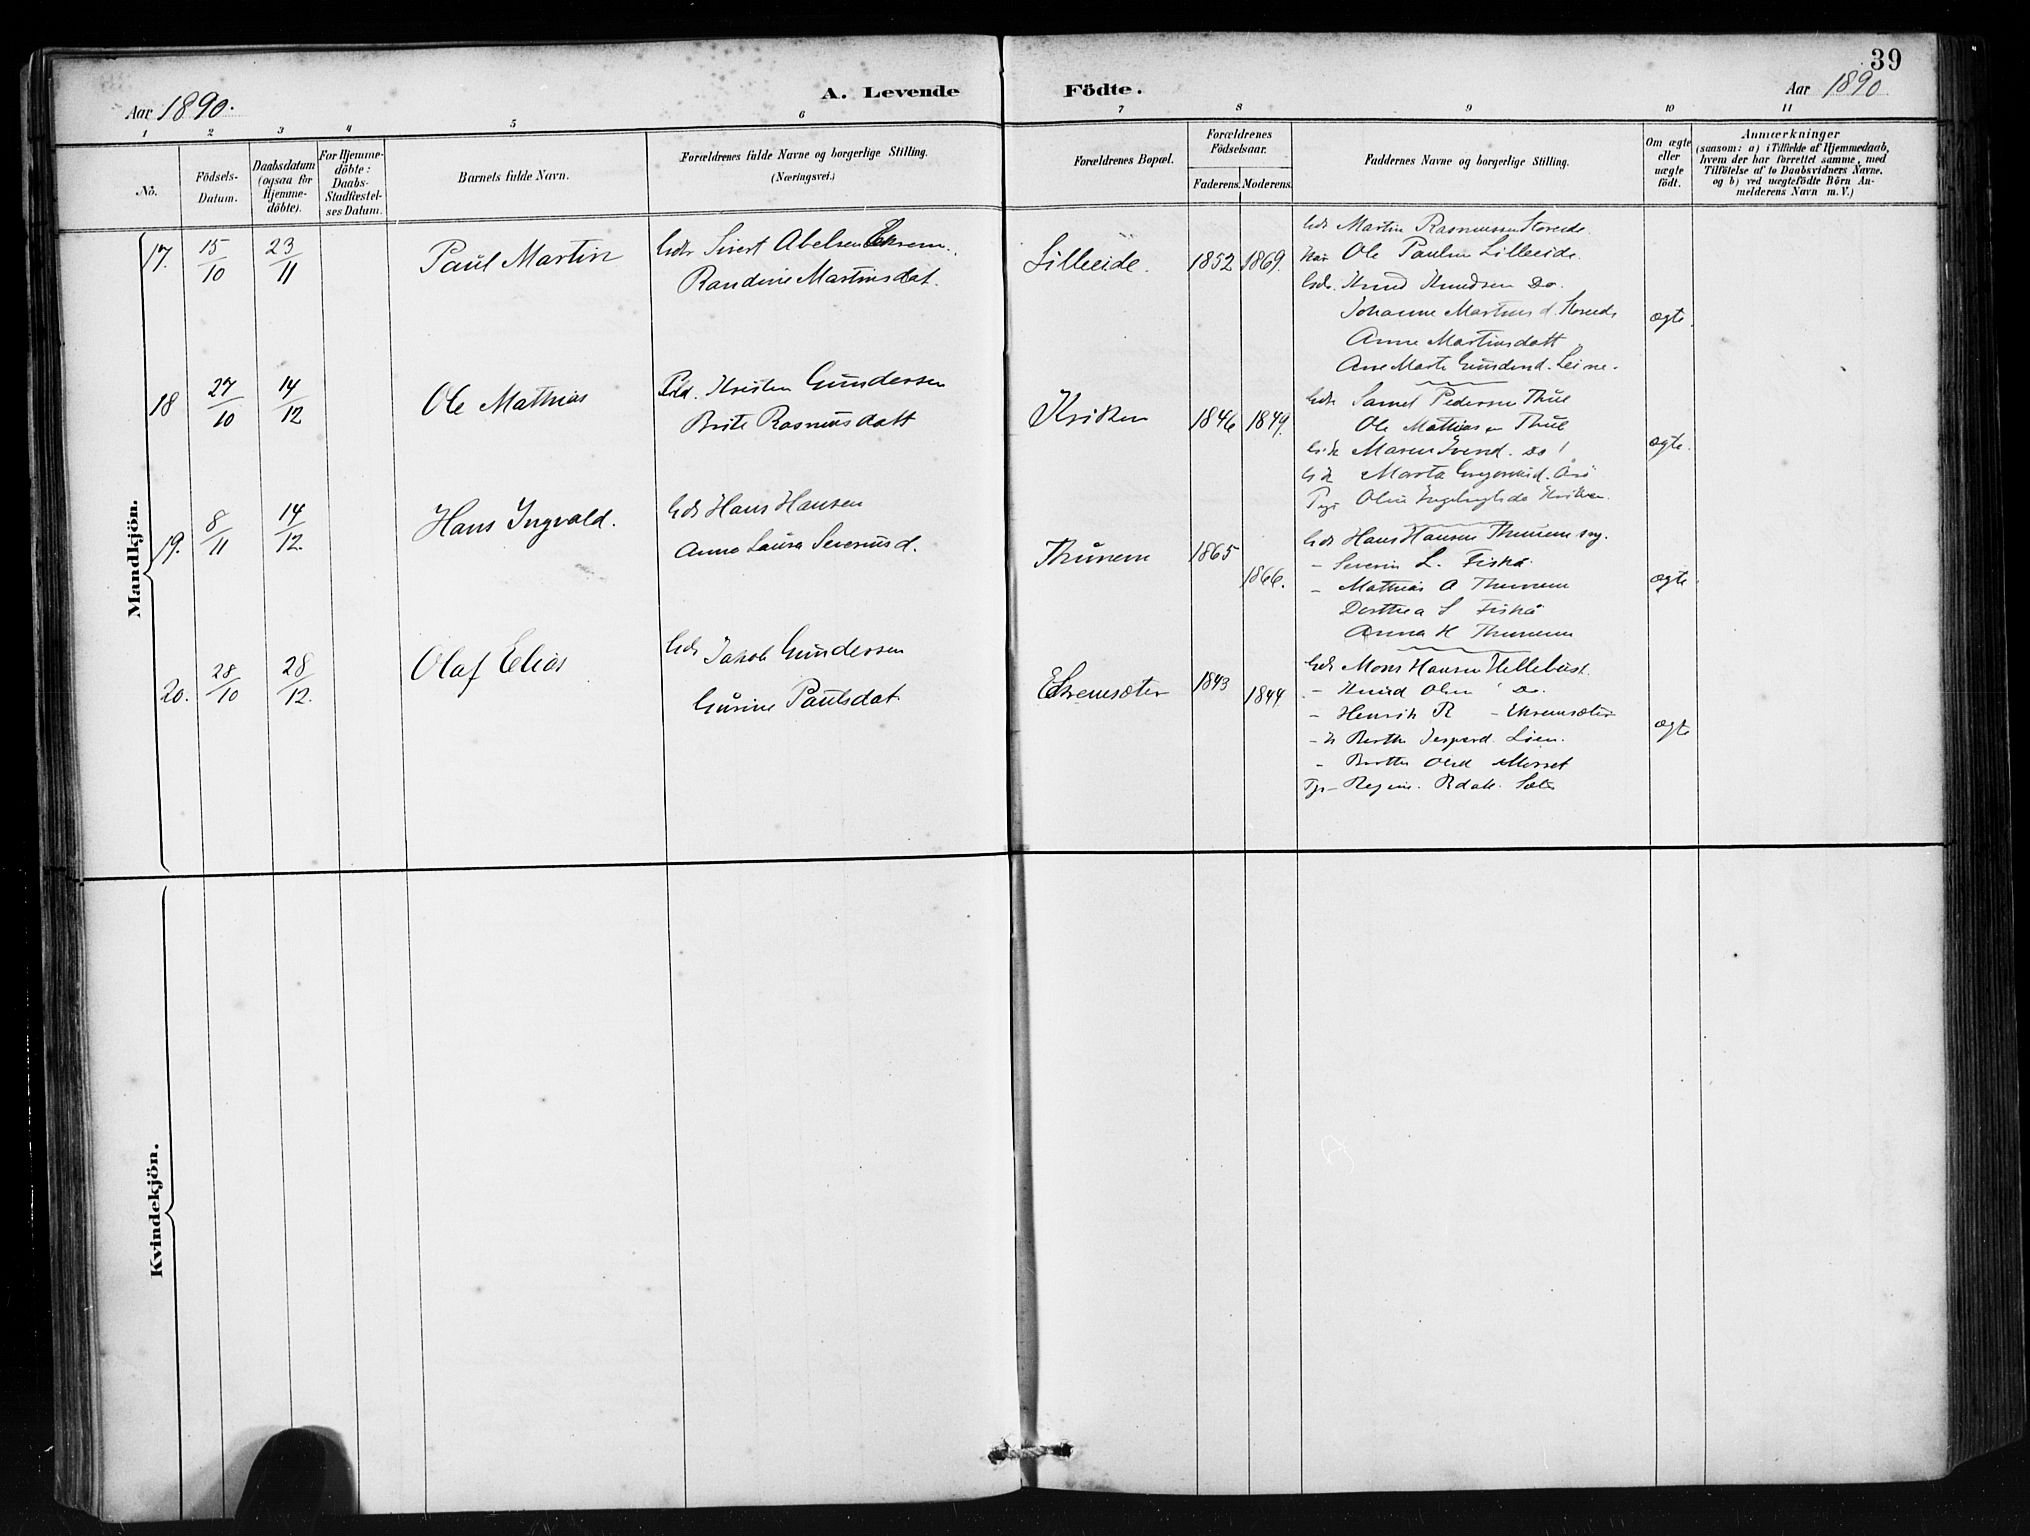 39
Aar 1890.
A. Levende Födte.
Aar 1890
1 2 3 4 5 6 7 8 9 10 11
No.
Födsels-
Datum.
Daabsdatum
(ogsaa for
Hjemme-
döbte).
For Hjemme-
döbte:
Daabs-
Stadfæstel-
ses Datum.
Barnets fulde Navn.
Forældrenes fulde Navne og borgerlige Stilling.
(Næringsvei.)
Forældrenes Bopæl.
Forældrenes
Födselsaar.
Faderens. Moderens.
Faddernes Navne og borgerlige Stilling.
Om ægte
eller
uægte
födt.
Anmærkninger
(saasom: a) i Tilfælde af Hjemmedaab,
hvem der har forrettet samme, med
Tilföielse af to Daabsvidners Navne.
og b) ved uægtefödte Börn An-
melderens Navn m. V.)
Mandkjön.
17. 15/10 23/11 Paul Martin
Gdr Sivert Abelsen Ekrem.
Randine Martinsdat.
Lilleeide. 1852 1869.
Gdr Martin Rasmussen Storeide.
Ole Paulsen Lilleeide.
Gdr. Knud Knudsen Do.
Johanne Martins d. Storeide
Anne Martinsdatt
Ane Marte Gundersd. Leine.
ægte.
18 27/10 14/12 Ole Mathias
Kristen Gundersen
Brite Rasmusdatt
Kriken 1846 1849.
Gdr Samel Pedersen Thue
Ole Mathiasen Thue
Maren Do
Marta
Oline Kriken
ægte.
19. 8/11 14/12. Hans Ingvald.
Gdr Hans Hansen
Anna Laura Severinsd.
Thunem 1865 1866.
Gdr Hans Hansen Thunem
- Severin L. Fiskå
- Mathias A Thunem
Dorthea S Fiskå
Anna H Thunem
ægte
20. 28/10 28/12. Olaf Elias
Gdr Jakob Gundersen
Gurine Paulsdat
Ekremsæter 1843 1844
Gdr Mons Hansen Hellebust
- Knud Olsen Do.
- Henrik R - Ekremsæter
Berthe Jespersd. Löen.
- Berthe Olsd Mosset
Regine. Rdatt. Sæter
ægte
Kvindekjön.